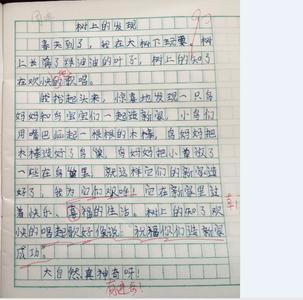 树上的发现
春天到了,我在大树下玩耍,树
上长满了绿油油的叶子,树上的知了
在欢快的歌唱。
我抬起头来,惊喜地发现一只鸟
妈妈和鸟宝宝们一起造新家,小鸟们
用嘴巴叼起一根根的木棒,鸟妈妈把
木棒造好了鸟巢,鸟妈妈把小草放了
一些在鸟巢里,就这样它们的新家造
好了,我为它们欢呼!它在新家里过
着快乐、喜福的生活。树上的知了欢
快的唱起歌好像说:祝福你们造新家
成功。
大自然真神奇呀!